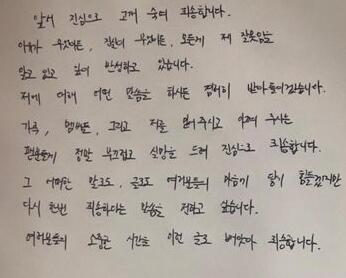 앞서 진심으로 고개 숙여 죄송합니다.
이유가 무엇이든, 진실이 무엇이든, 모든게 제 잘못임을
알고 있고 깊이 반성하고 있습니다.
저에 대해 어떤 말씀을 하시든 겸허히 받아들이겠습니다.
가족, 멤버들, 그리고 저를 믿어주시고 아껴 주시는
팬분들께 정말 부끄럽고 실망을 드려 진심으로 죄송합니다.
그 어떠한 말로도, 글로도 여러분들의 마음에 닿기 힘들겠지만
다시 한번 죄송하다는 말씀을 전하고 싶습니다.
여러분들의 소중한 시간을 이런 글로 뺏었다 죄송합니다.